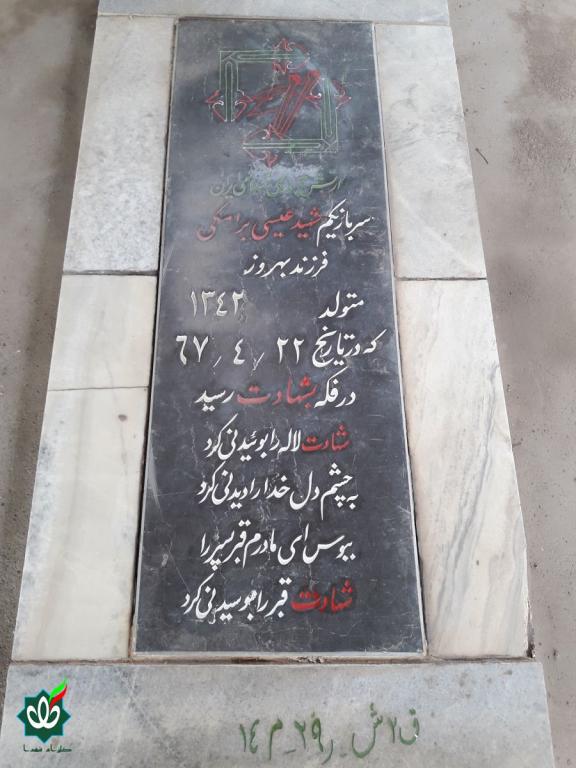 ارتش جمهوری اسلامی ایران
سرباز یکم شهید عیسی برامکی
فرزند بهروز
متولد ۱۳۴۲
که در تاریخ ۲۲ / ۴ / ۶۷
در فکه بشهادت رسید
شهادت لاله را بوئیدنی کرد
به چشم دل خدا را دیدنی کرد
ببوس ای مادرم قبر پسر را
شهادت قبر را بوسیدنی کرد
ق ۷ ش - ر ۲۹ - م ۱۴
گلزار شهدا